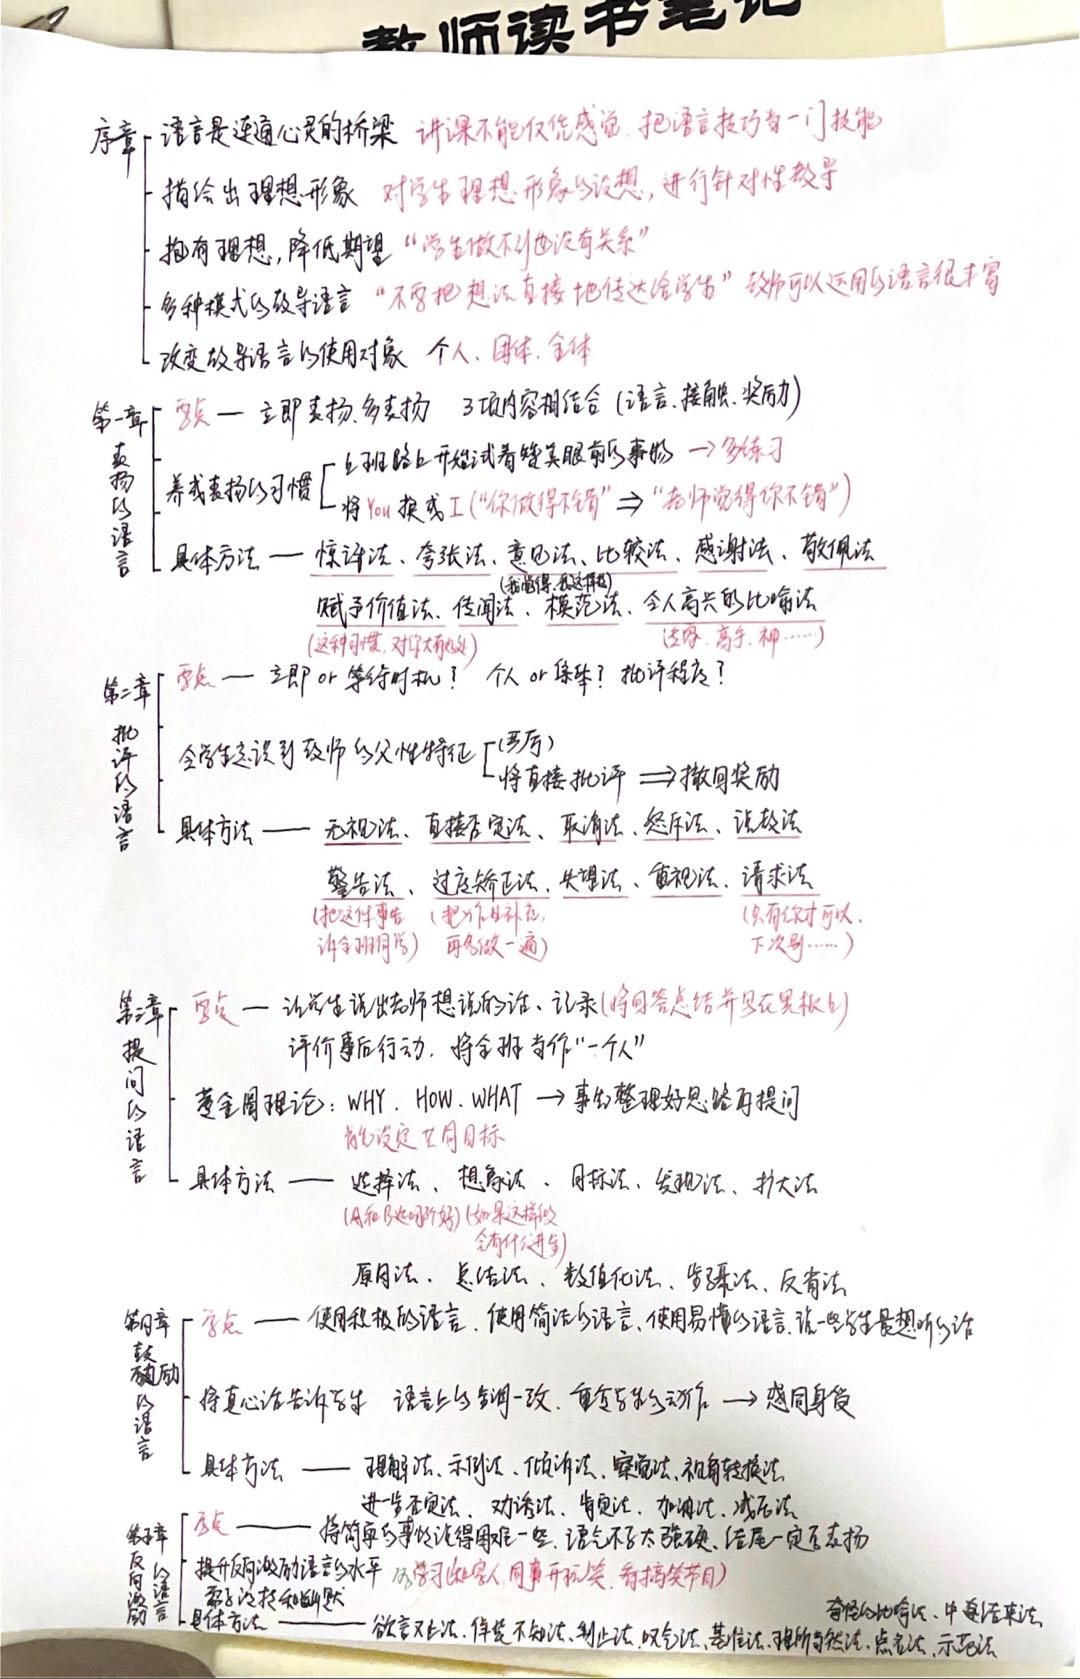 教师读书笔记
序章 语言是连通心灵的桥梁 讲课不能仅凭感觉.把语言技巧当一门技能
描绘出理想形象 对学生理想形象的设想,进行针对性教导
抱有理想,降低期望 “学生做不到也没有关系”
多种模式的教导语言 “不要把想法直接地传达给学生” 教师可以运用的语言很丰富
改变教导语言的使用对象 个人、团体.全体
第一章 表扬的语言
要点 — 立即表扬、多表扬 3项内容相结合(语言、接触、奖励)
养成表扬的习惯
上班路上开始试着赞美眼前的事物 → 多练习
将You换成I(“你做得不错” ⇒ “老师觉得你不错”)
具体方法 — 惊讶法、夸张法、意见法、比较法、感谢法、敬佩法
(我觉得、我这样想)
赋予价值法、传闻法、模范法、令人高兴的比喻法
(这种习惯,对你大有好处) (达客、高手、神……)
第二章 批评的语言
要点 — 立即or等待时机? 个人or集体? 批评程度?
令学生意识到教师的父性特征
(严厉)
将直接批评 ⇒ 撤回奖励
具体方法 — 无视法、直接否定法、取消法、怒斥法、说教法
警告法、过度矫正法、失望法、重视法、请求法
(把这件事告诉全班同学) (把作业补充,再多做一遍) (只有你才可以,下次别……)
第三章 提问的语言
要点 — 让学生说出老师想说的话、记录(将回答总结并写在黑板上)
评价事后行动.将全班当作“一个人”
黄金圈理论:WHY.HOW.WHAT → 事先整理好思路再提问
首先设定共同目标
具体方法 — 选择法、想象法、目标法、发现法、扩大法
(A和B选哪个好)(如果这样做会有什么进步)
原因法、总结法、数值化法、步骤法、反省法
第四章 鼓励的语言
要点 — 使用积极的语言、使用简洁的语言、使用易懂的语言、说一些学生最想听的话
将真心话告诉学生 语言上的步调一致、重复学生的动作 → 感同身受
具体方法 — 理解法、示例法、倾诉法、察觉法、视角转换法
进一步否定法、劝诱法、肯定法、加油法、减压法
第五章 反向激励的语言
要点 — 将简单的事情说得困难一些、语气不要太强硬、结尾一定要表扬
提升反向激励语言的水平 (学习如客人、同事开玩笑、看搞笑节目)
要点支持和幽默
具体方法 — 欲言又止法、佯装不知法、制止法、叹气法、基准法、理所当然法、点名法、示范法
奇怪的比喻法、中途结束法